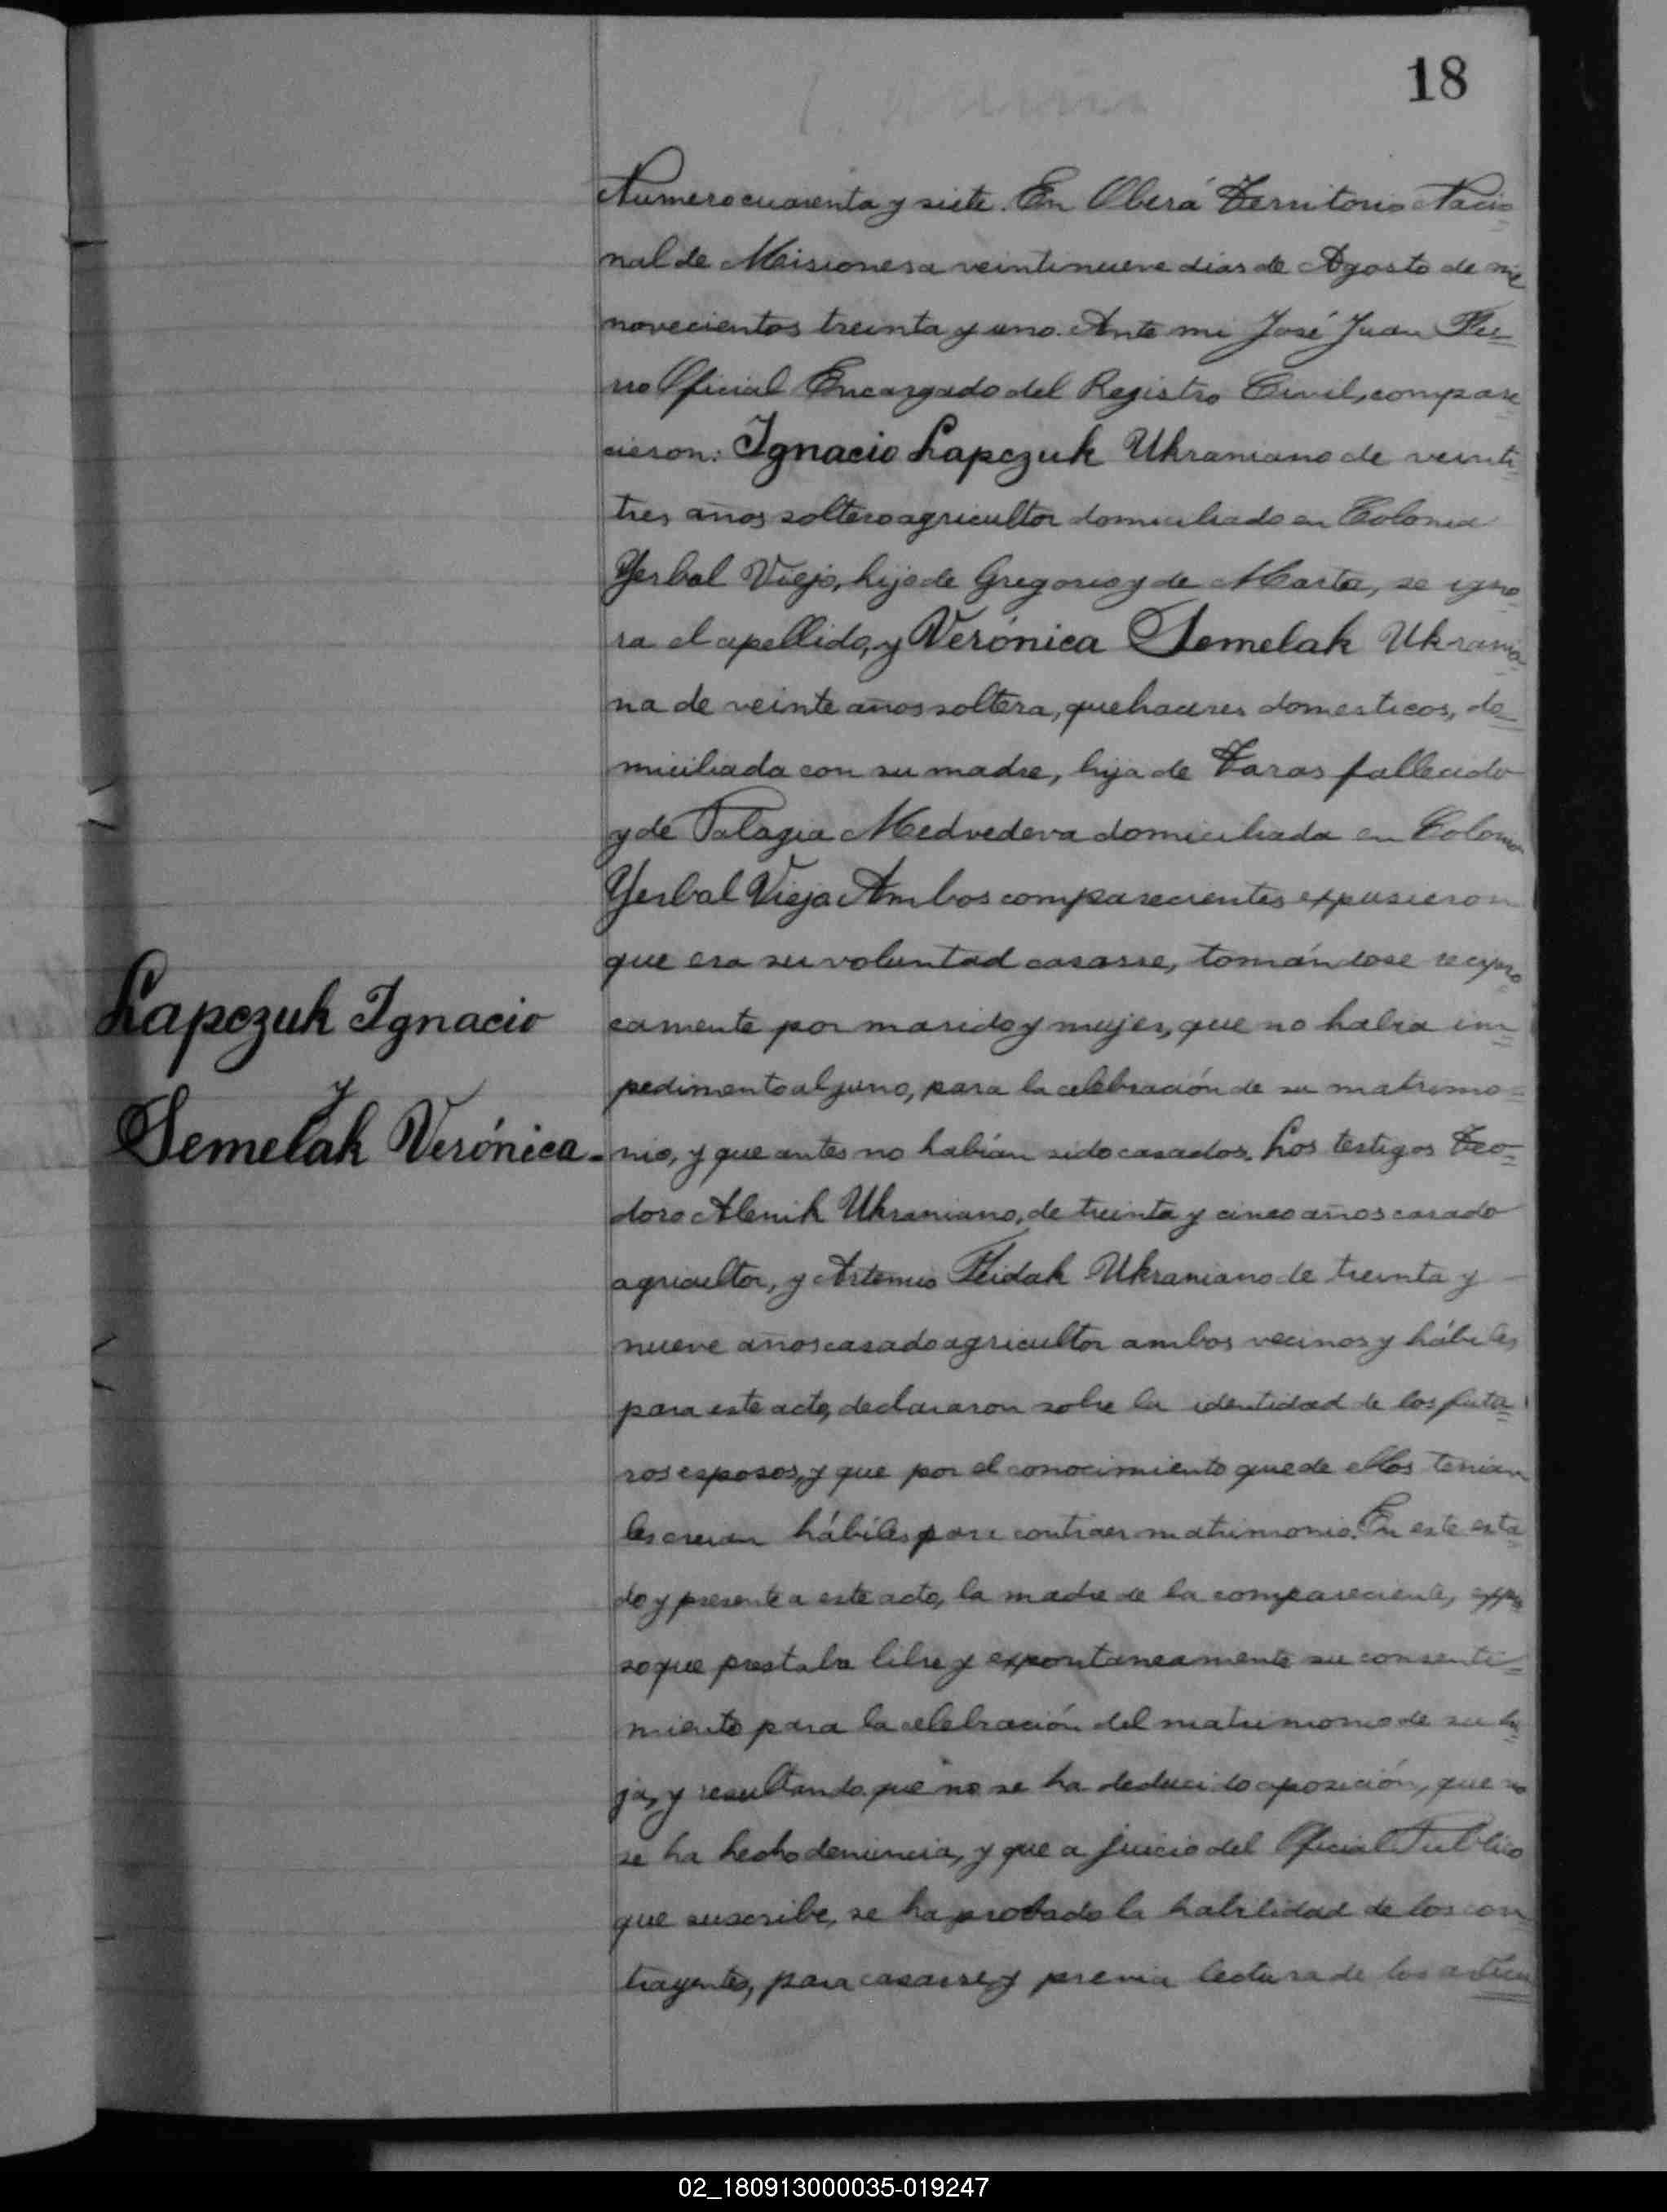 18
Numero cuarenta y siete. En Oberá Territorio Nacio=
nal de Misiones a veintinueve dias de Agosto de mil
novecientos treinta y uno. Ante mi José Juan
Oficial Encargado del Registro Civil, compare=
cieron: Ignacio Lapczuk Ukraniano de veinti=
tres años soltero agricultor domiciliado en Colonia
Yerbal Viejo, hijo de Gregorio y de Marta, se igno=
ra el apellido, y Verónica Semelak Ukrania=
na de veinte años soltera, quehaceres domesticos, do=
miciliada con su madre, hija de Taras fallecido
y de Palagia Medvedeva domiciliada en Colonia
Yerbal Viejo Ambos comparecientes expusieron
que era su voluntad casarse, tomándose recipro=
camente por marido y mujer, que no habia im=
pedimento alguno, para la celebración de su matrimo=
nio, y que antes no habían sido casados. Los testigos Teo=
doro Alenik Ukraniano, de treinta y cinco años casado
agricultor, y Artemio Ukraniano de treinta y
nueve años casado agricultor ambos vecinos y hábiles
para este acto, declararon sobre la identidad de los futu=
ros esposos, y que por el conocimiento que de ellos tenian
les creian hábiles para contraer matrimonio. En este esta=
do y presente a este acto, la madre de la compareciente, expu=
so que prestaba libre y expontaneamente su consenti=
miento para la celebración del matrimonio de su hi=
ja, y resultando que no se ha deducido oposición, que no
se ha hecho denuncia, y que a juicio del Oficial Publico
que suscribe, se ha probado la habilidad de los con=
trayentes, para casarse y previa lectura de los articu=
Lapczuk Ignacio
y
Semelak Verónica.
02_180913000035-019247